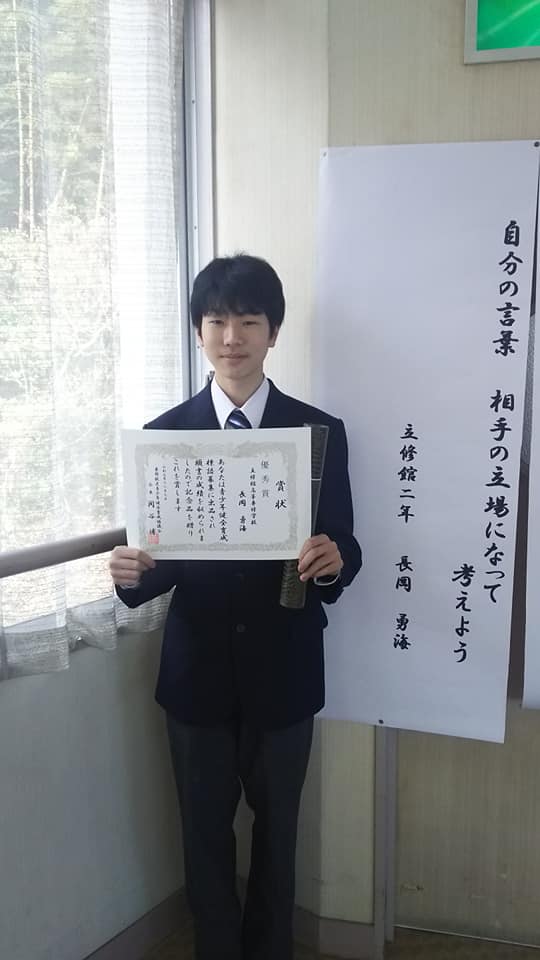 自分の言葉 相手の立場になって
考えよう
立修館二年 長岡 勇海
賞状
優秀賞
立修館高等専修学校
長岡 勇海
あなたは青少年健全育成
標語募集に出品され
頭書の成績を収められま
したので記念品を贈り
これを賞します